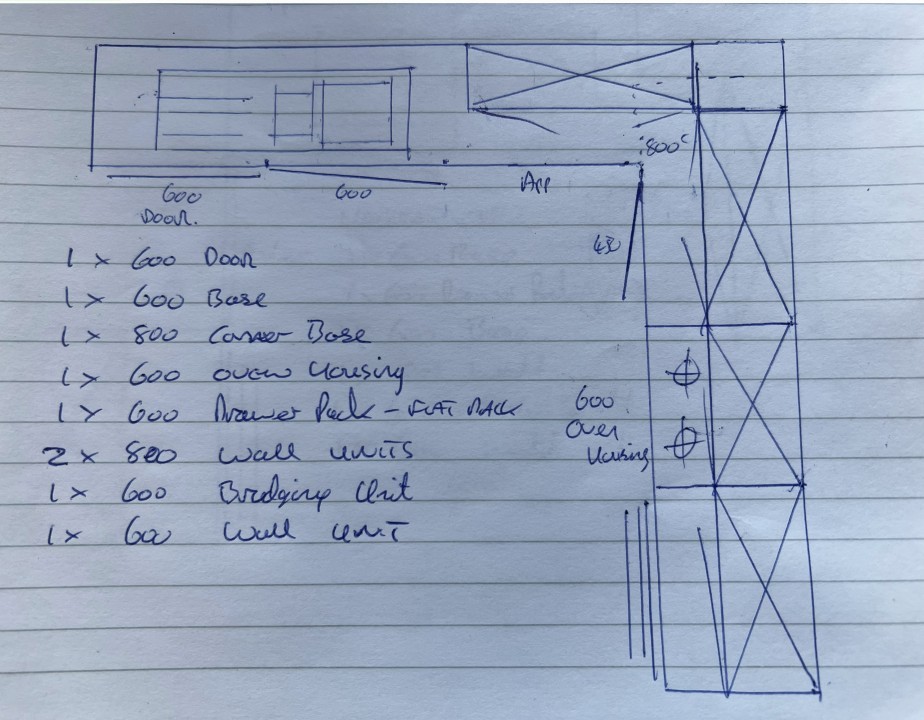 800c
600
Door.
600
App
450
1 x 600 Door
1 x 600 Base
1 x 800 Corner Base
1 x 600 oven Housing
1 x 600 Drawer Pack - FLAT PACK
2 x 800 Wall UNITS
1 x 600 Bridging Unit
1 x 600 Wall UNIT
600
Oven
Housing